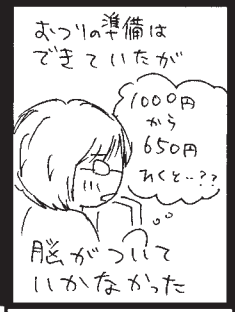 おつりの準備は
できていたが
1000円
から
650円
ひくと…??
脳がついて
いかなかった